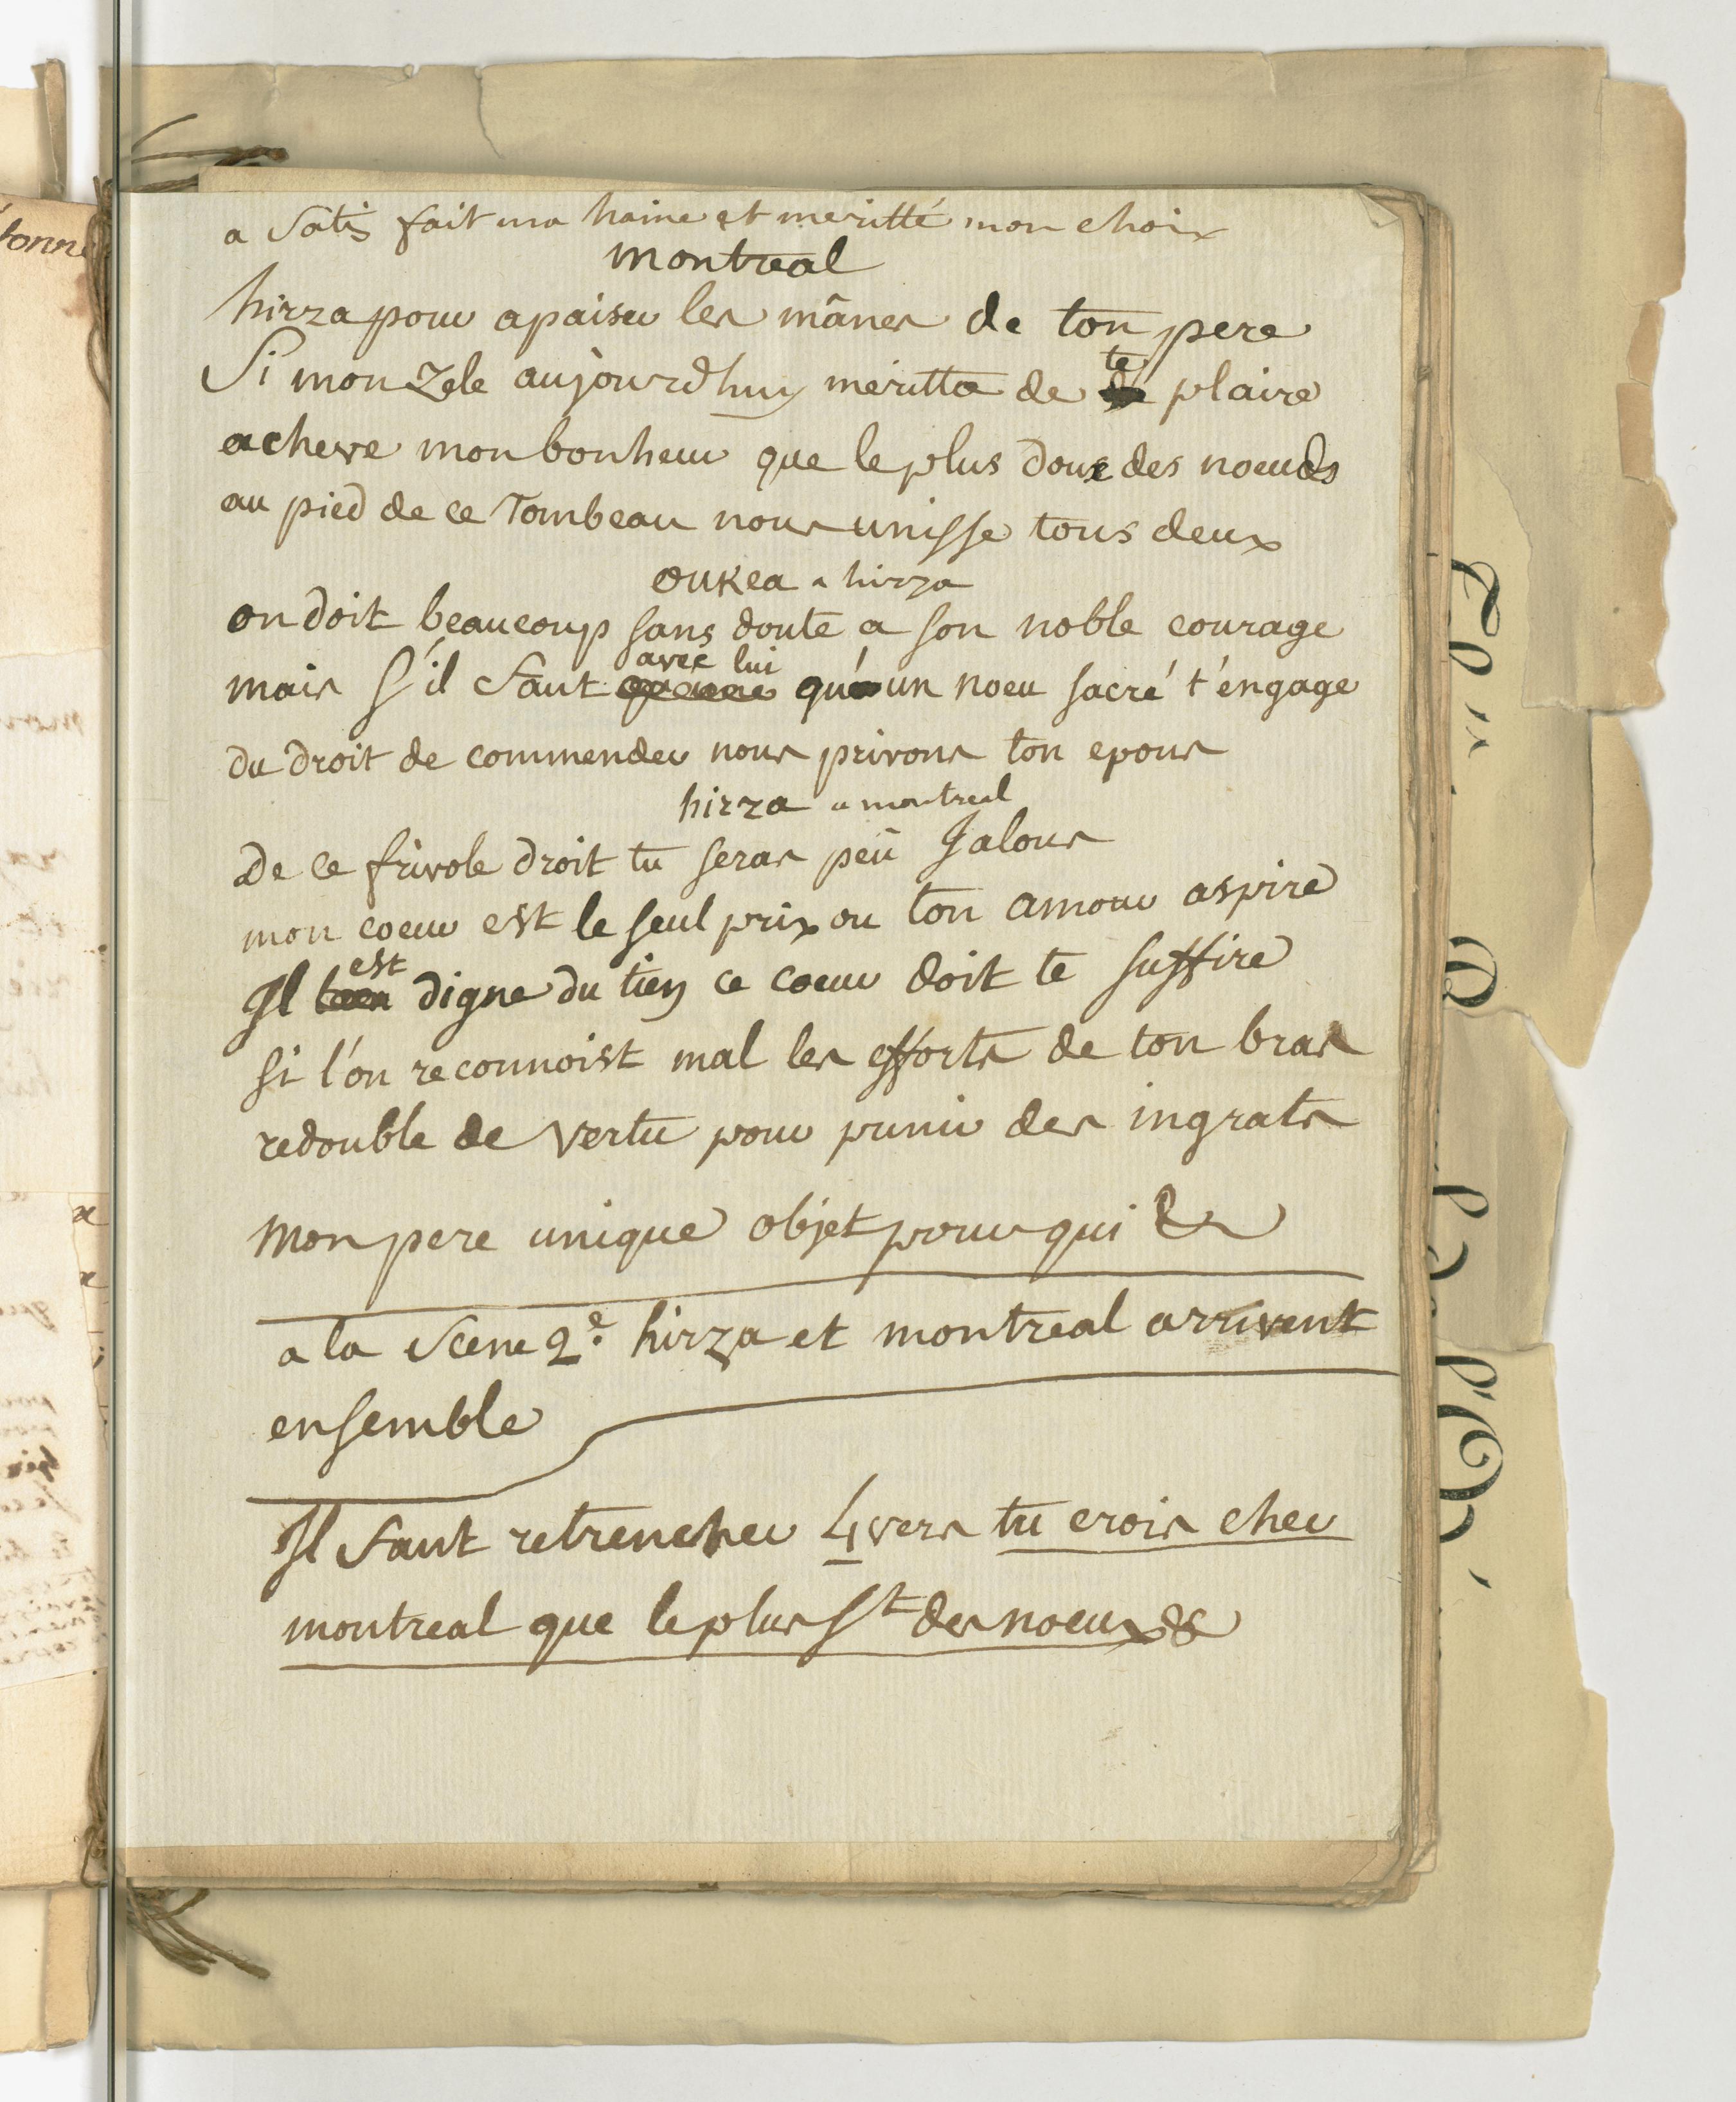 a satis fait ma haine et meritté mon choix
montreal
hirza pour apaiser les mânes de ton pere
Si mon zele aujourdhuy meritta de te plaire
acheve mon bonheur que le plus doux des noeuds
au pied de ce Tombeau nous unisse tous deux
oukea a hirza
on doit beaucoup sans doute a son noble courage
avec lui
mais s'il faut qu'un noeu sacré t'éngage
du droit de commender nous privons ton epous
hirza a montreal
De ce frivole droit tu seras peû Jalous
mon coeur est le seul prix ou ton amour aspire
est
Il digne du tien ce coeur doit te suffire
si l'ón reconnoist mal les efforts de ton bras
redouble de vertu pour punir des ingrats
mon pere unique objet pour qui &
a la scene 2e. hirza et montreal arrivent
ensemble
Il faut retrencher 4 vers tu crois cher
montreal que le plus st des noeux &